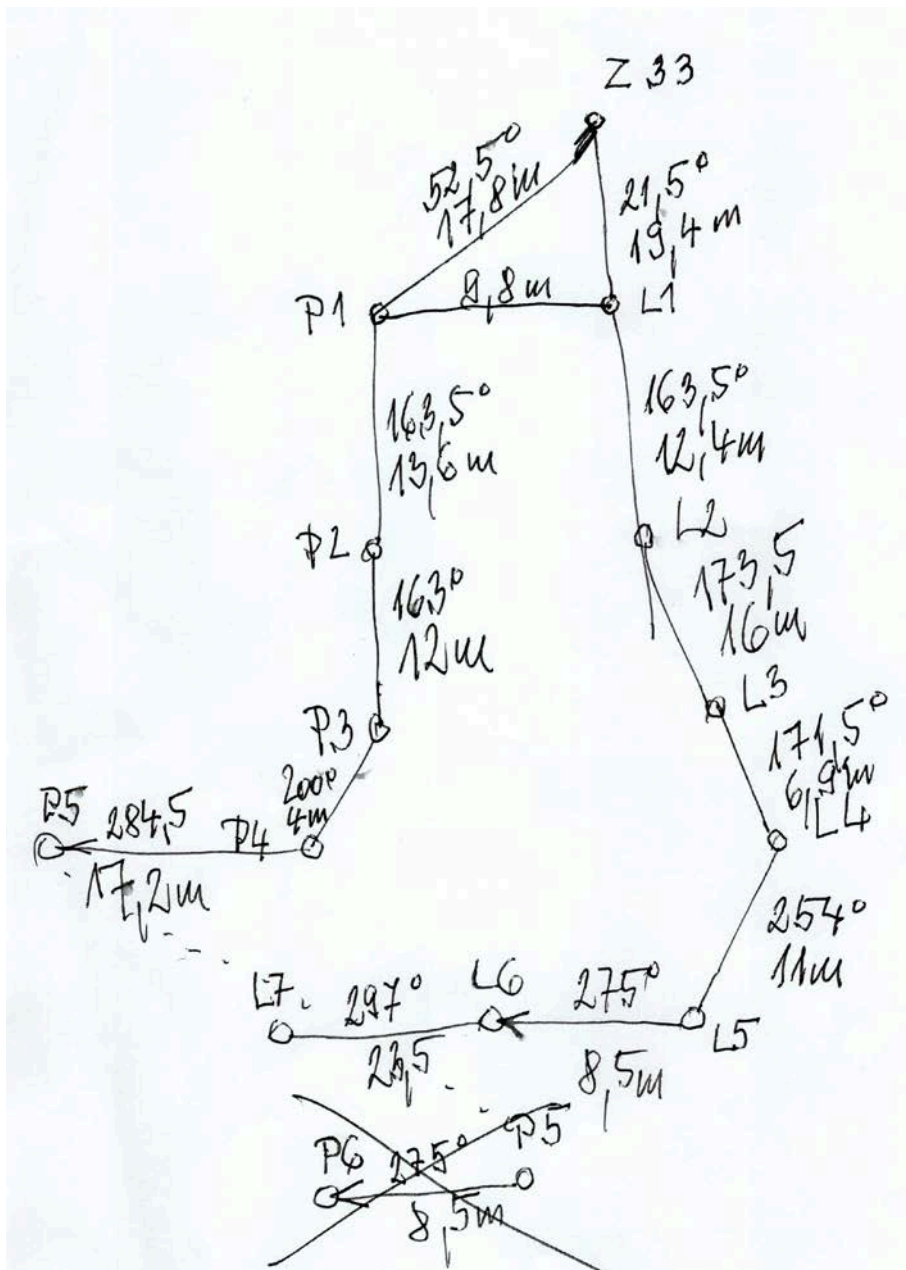 Z 33
52,5°
17,8m
21,5°
19,4m
P1
9,8m
L1
163,5°
13,6m
163,5°
12,4m
P2
L2
163°
12m
173,5
16m
P3
L3
200°
4m
171,5°
6,9m
P5
284,5
P4
L4
17,2m
254°
11m
L7
297°
L6
275°
L5
23,5
8,5m
P6
275°
P5
8,5m